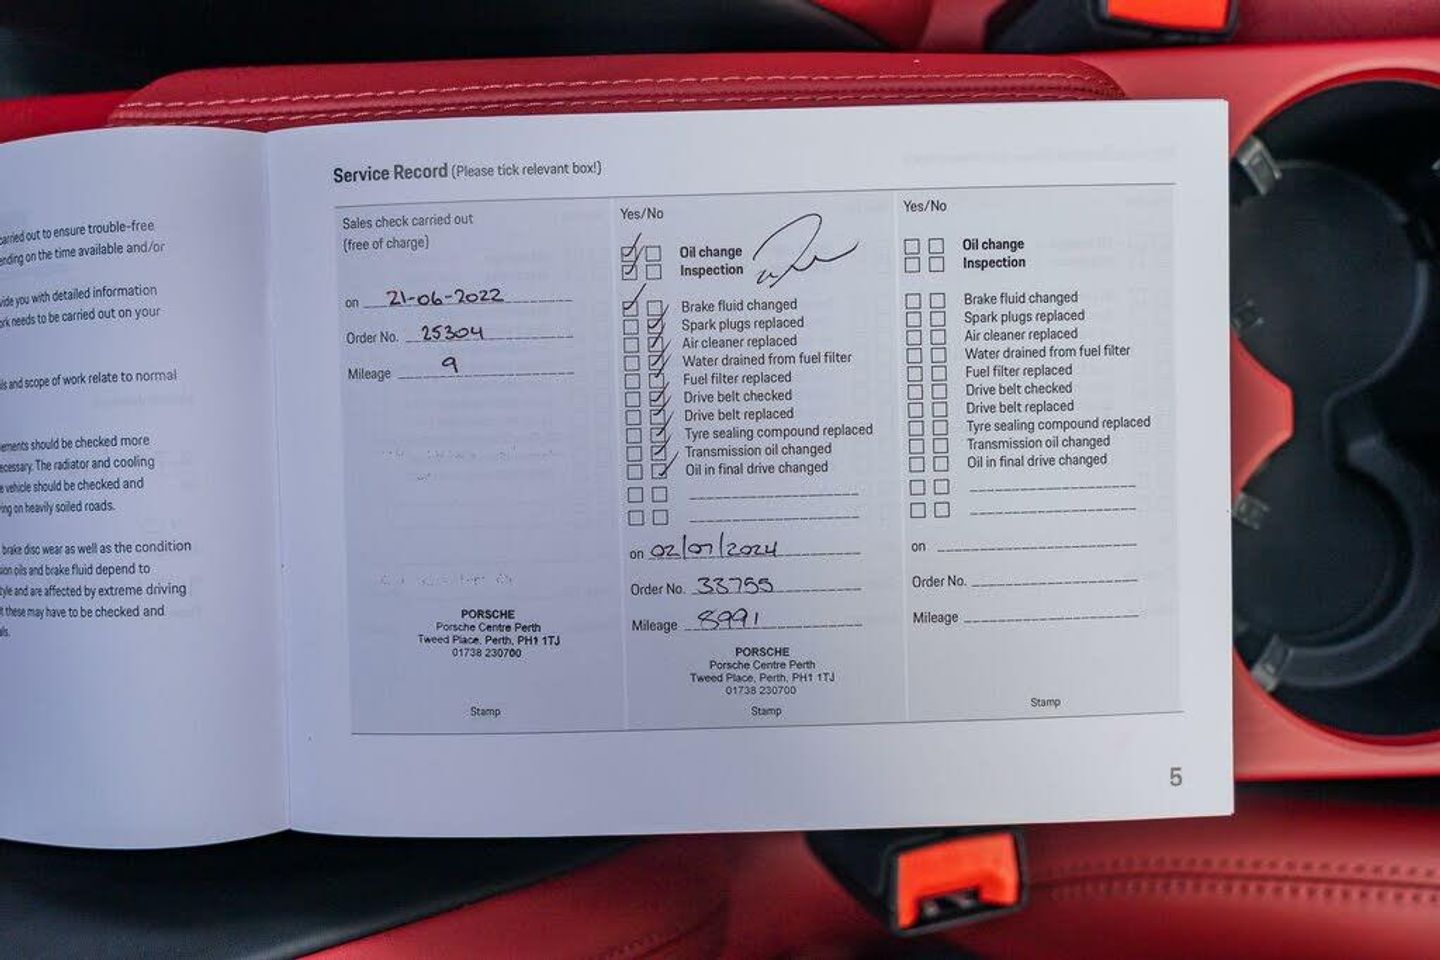 carried out to ensure trouble-free
ending on the time available and/or
vide you with detailed information
ork needs to be carried out on your
ils and scope of work relate to normal
ements should be checked more
ecessary. The radiator and cooling
e vehicle should be checked and
ing on heavily soiled roads.
brake disc wear as well as the condition
sion oils and brake fluid depend to
style and are affected by extreme driving
t these may have to be checked and
als.
Service Record (Please tick relevant box!)
Sales check carried out
(free of charge)
on 21-06-2022
Order No. 25304
Mileage 9
PORSCHE
Porsche Centre Perth
Tweed Place, Perth, PH1 1TJ
01738 230700
Stamp
Yes/No
Oil change
Inspection
Brake fluid changed
Spark plugs replaced
Air cleaner replaced
Water drained from fuel filter
Fuel filter replaced
Drive belt checked
Drive belt replaced
Tyre sealing compound replaced
Transmission oil changed
Oil in final drive changed
on 02/07/2024
Order No. 33755
Mileage 8991
PORSCHE
Porsche Centre Perth
Tweed Place, Perth, PH1 1TJ
01738 230700
Stamp
Yes/No
Oil change
Inspection
Brake fluid changed
Spark plugs replaced
Air cleaner replaced
Water drained from fuel filter
Fuel filter replaced
Drive belt checked
Drive belt replaced
Tyre sealing compound replaced
Transmission oil changed
Oil in final drive changed
on
Order No.
Mileage
Stamp
5